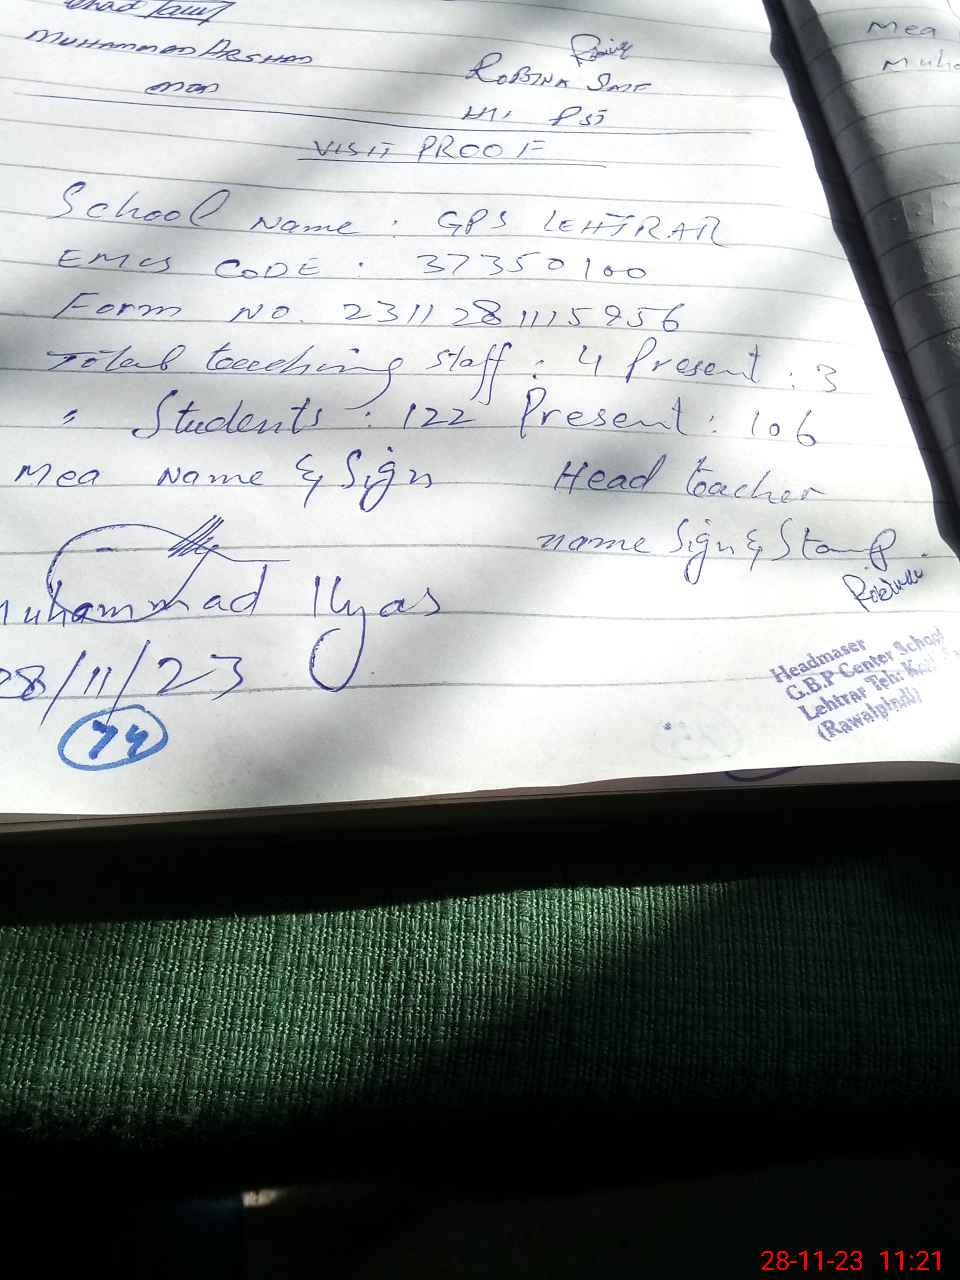 MUHAMMAD ARSHAD
ROBINA
PST
VISIT PROOF
School Name : GPS LEHTRAR
EMIS CODE : 37350100
Form NO. 2311281115956
Total teaching staff : 4 Present : 3
" Students : 122 Present : 106
Mea Name & Sign Head teacher
name Sign & Stamp.
Muhammad Ilyas
28/11/23
74
Headmaser
G.B.P Center School
Lehtrar Teh:
(Rawalpindi)
Mea
28-11-23 11:21